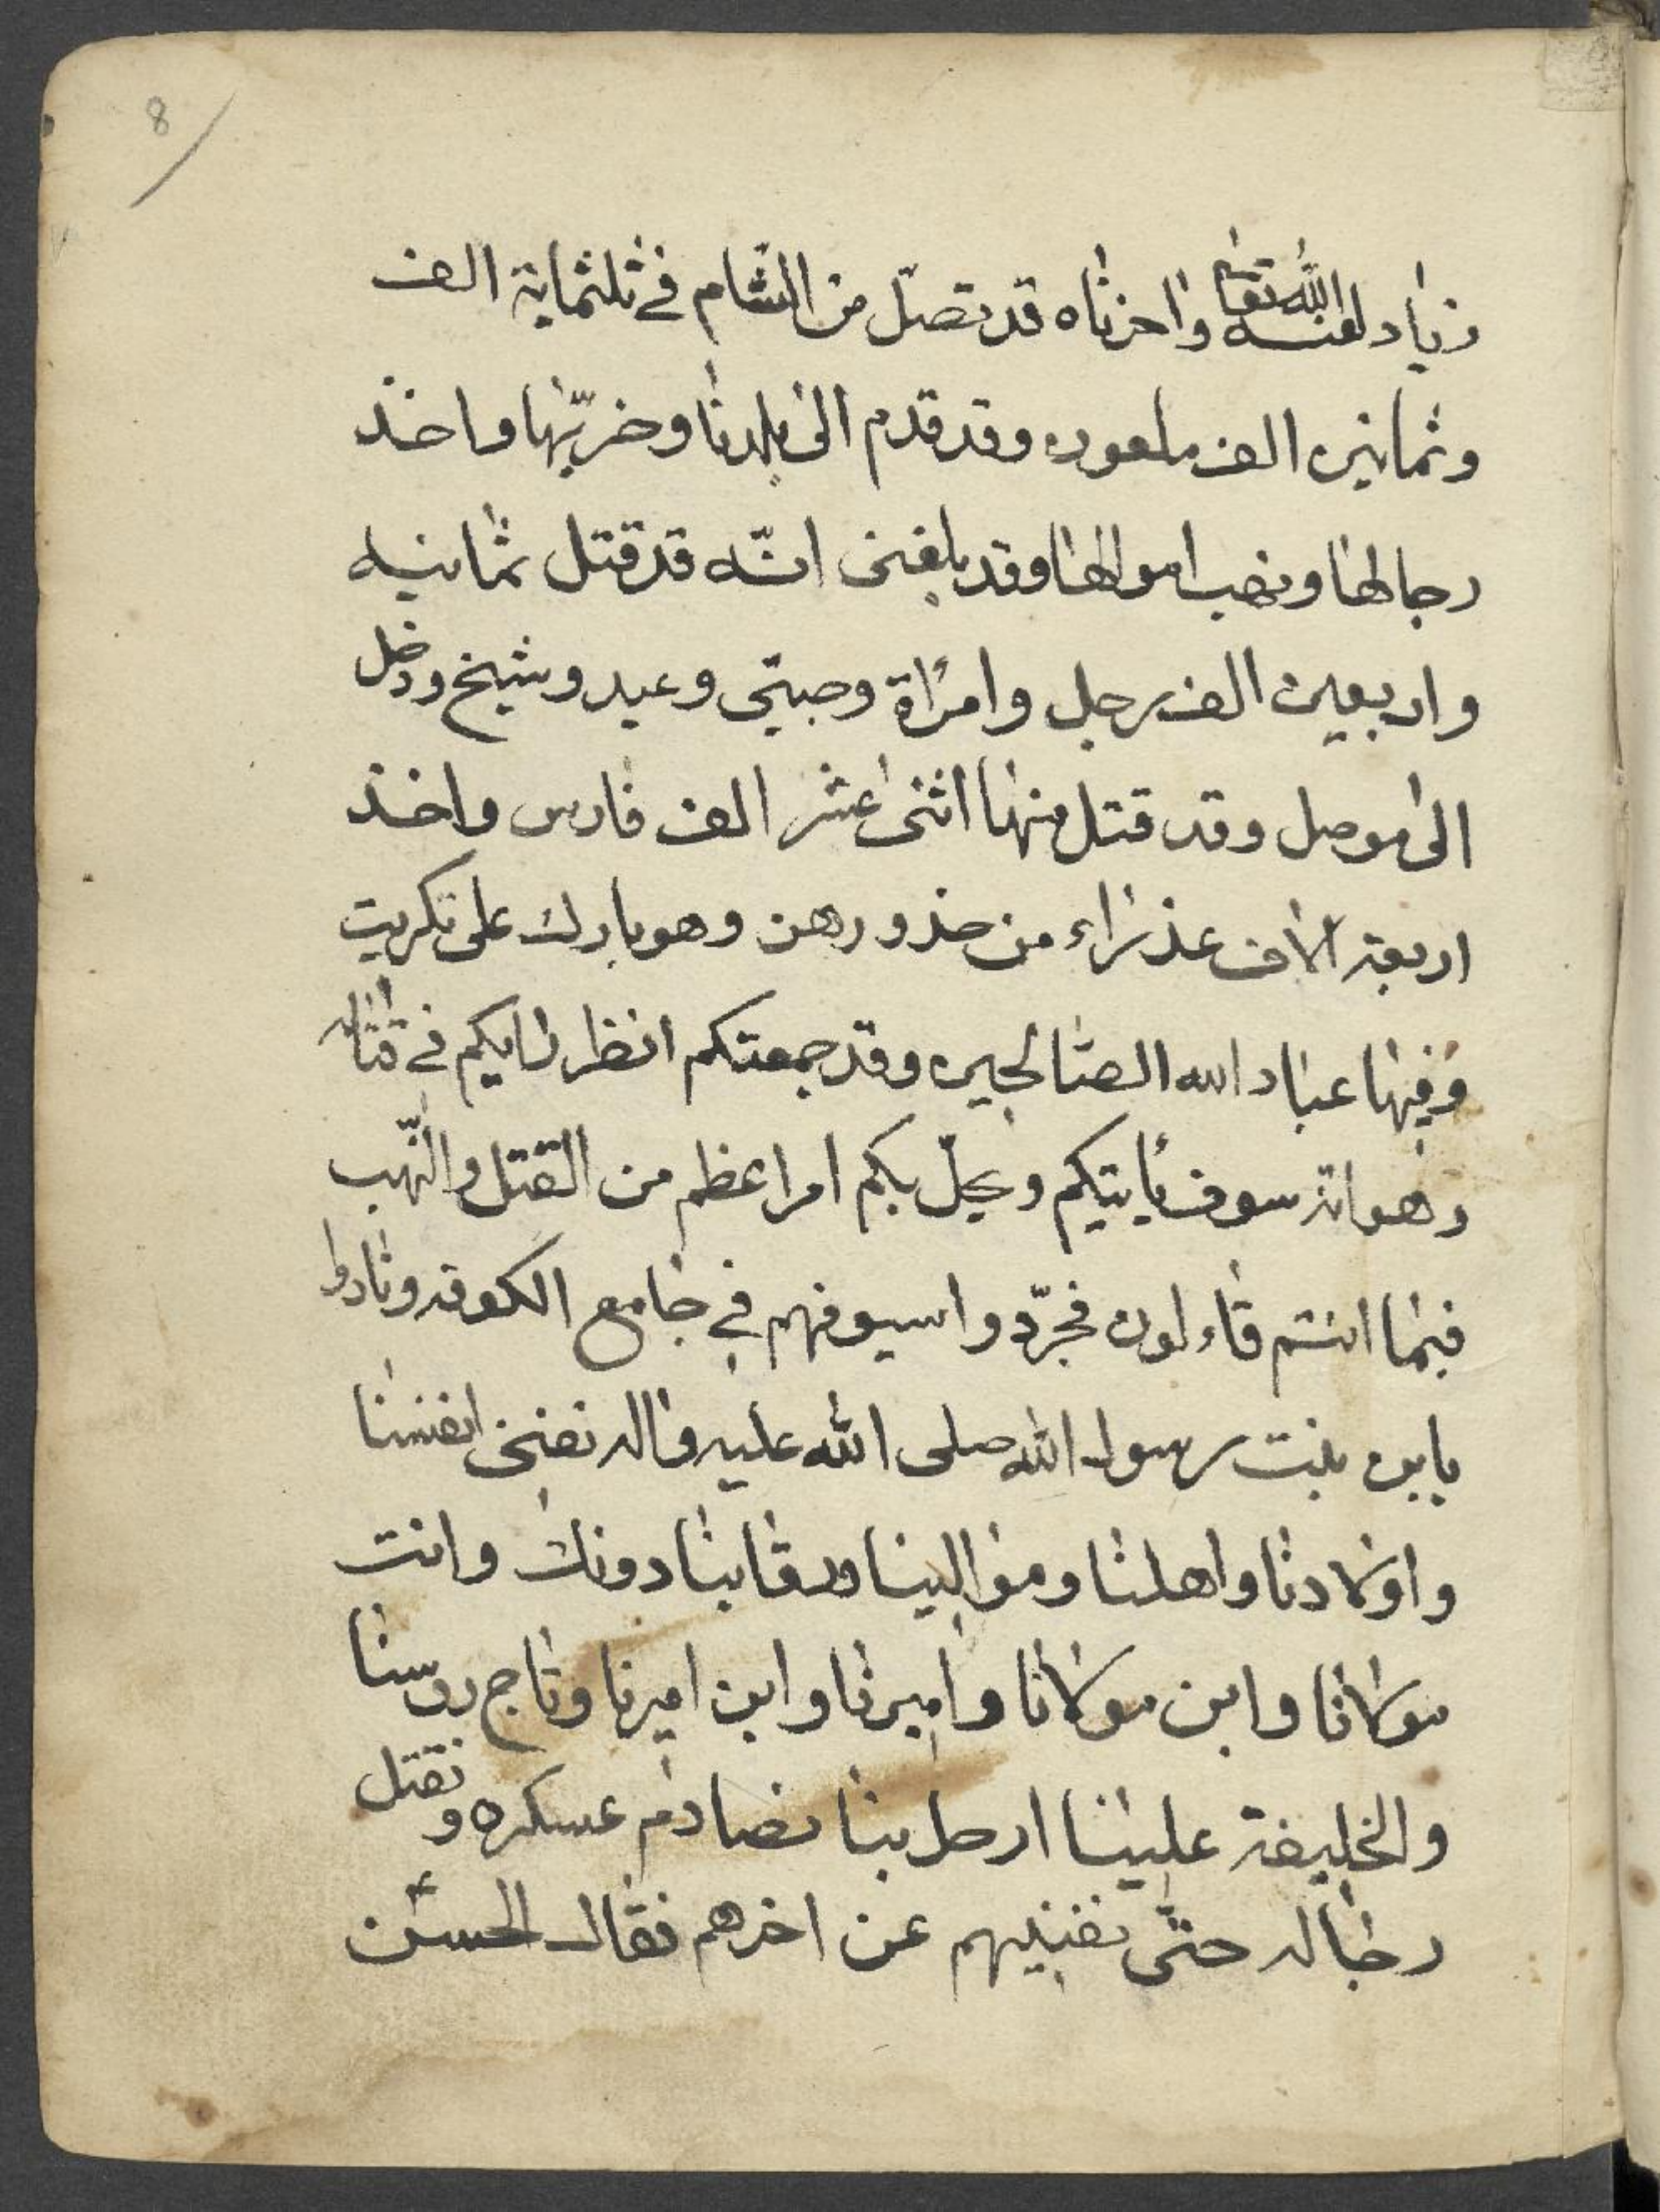 8
زياد لعنه الله تعالى واخزاه قد تصل من الشام في ثلثماية الف
وثمانين الف ملعون وقد قدم الى بلدنا وخربها واخذ
رجالها ونهب اموالها وقد بلغنى انه قد قتل ثمانيه
واربعين الف رجل وامرأة وصبي وعبد وشيخ ودخل
الى موصل وقد قتل منها اثنى عشر الف فارس واخذ
اربعة الاف عذراء من خدورهن وهو بارك على تكريت
وفيها عباد الله الصالحين وقد جمعتكم انظر رايكم في قتاله
وهوانه سوف يأتيكم ويحلّ بكم امر اعظم من القتل والنّهب
فبما انتم قاءلون فجرّدوا سيوفهم في جامع الكوفه ونادوا
يابن بنت رسول الله صلى الله عليه واله نفنى انفسنا
واولادنا واهلنا وموالينا ورقابنا دونك وانت
مولانا وابن مولانا واميرنا وابن اميرنا وتاج روسنا
والخليفة علينا ارحل بنا نصادم عسكره ونقتل
رجاله حتّى نفنيهم عن اخرهم فقال الحسن